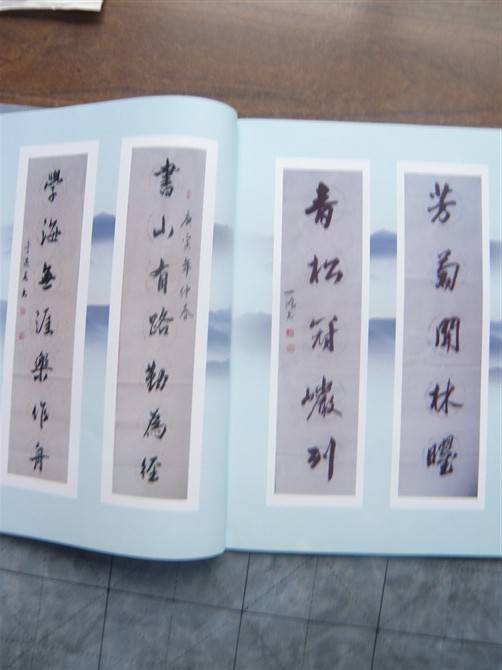 書山有路勤為徑
庚寅年仲春
學海無涯樂作舟
芳菊開林曜
青松冠巖列